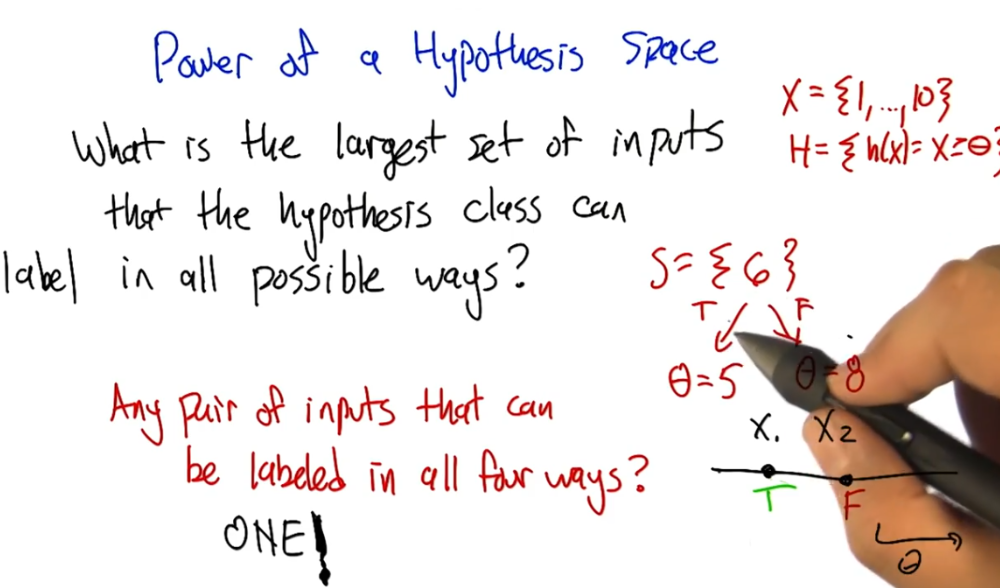 Power of a Hypothesis Space
What is the largest set of inputs
that the hypothesis class can
label in all possible ways?
X = {1,...,10}
H = {h(x) = x ≥ θ}
S = {6}
T F
θ=5 θ=8
Any pair of inputs that can
be labeled in all four ways?
ONE!
X1 X2
T F
θ